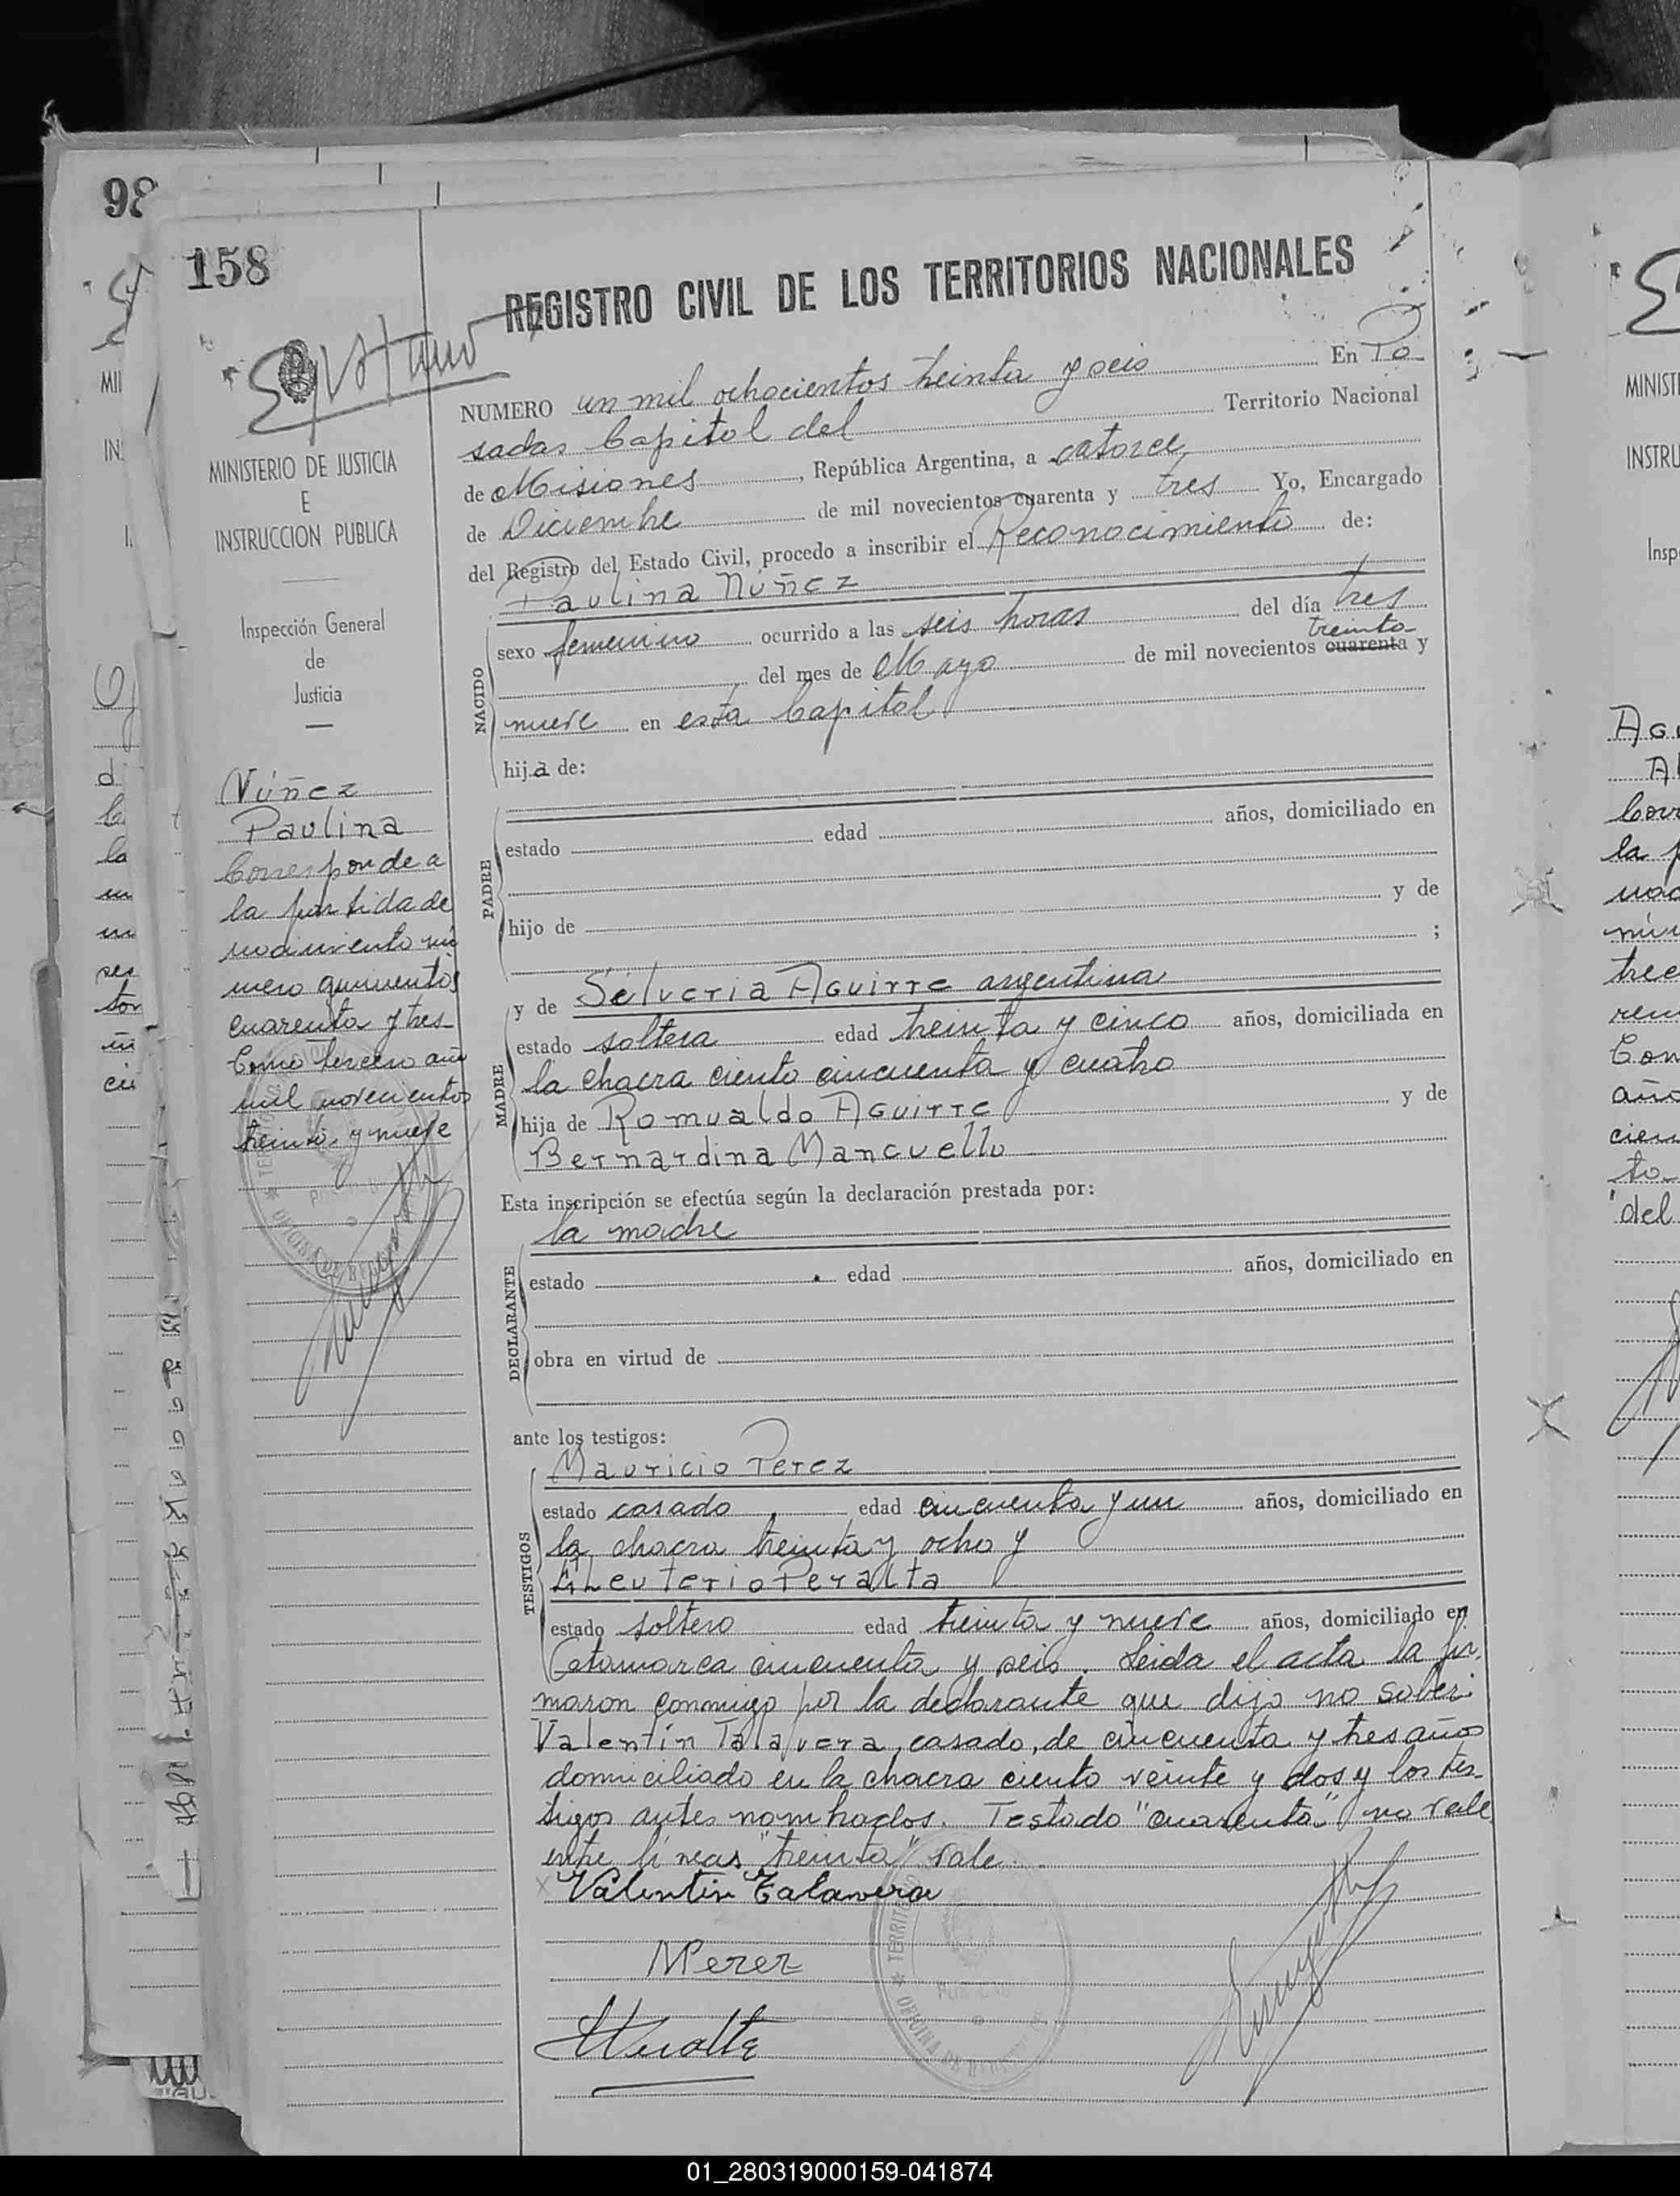 98
158
REGISTRO CIVIL DE LOS TERRITORIOS NACIONALES
NUMERO un mil ochocientos treinta y seis En Po
sadas Capital del Territorio Nacional
de Misiones, República Argentina, a catorce
de Diciembre de mil novecientos cuarenta y tres Yo, Encargado
del Registro del Estado Civil, procedo a inscribir el Reconocimiento de:
Paulina Núñez
NACIDO
sexo femenino ocurrido a las seis horas del día tres
treinta
del mes de Mayo de mil novecientos cuarenta y
nueve en esta Capital
hija de:
PADRE
estado edad años, domiciliado en
hijo de y de
;
MADRE
y de Silveria Aguirre argentina
estado soltera edad treinta y cinco años, domiciliada en
la chacra ciento cincuenta y cuatro
hija de Romualdo Aguirre y de
Bernardina Mancuello
Esta inscripción se efectúa según la declaración prestada por:
la madre
DECLARANTE
estado edad años, domiciliado en
obra en virtud de
ante los testigos:
Mauricio Perez
TESTIGOS
estado casado edad cincuenta y un años, domiciliado en
la chacra treinta y ocho y
Eleuterio Peralta
estado soltero edad treinta y nueve años, domiciliado en
Catamarca cincuenta y seis. Leida el acta la fir
maron conmigo por la declarante que dijo no saber.
Valentín Talavera, casado, de cincuenta y tres años
domiciliado en la chacra ciento veinte y dos y los tes-
tigos antes nombrados. Testado "cuarenta" no vale
entre líneas "treinta" vale.
Valentin Talavera
MPerez
MINISTERIO DE JUSTICIA
E
INSTRUCCION PUBLICA
Inspección General
de
Justicia
Núñez
Paulina
Corresponde a
la partida de
nacimiento nú
mero quinientos
cuarenta y tres
Tomo tercero año
mil novecientos
treinta y nueve
01_280319000159-041874